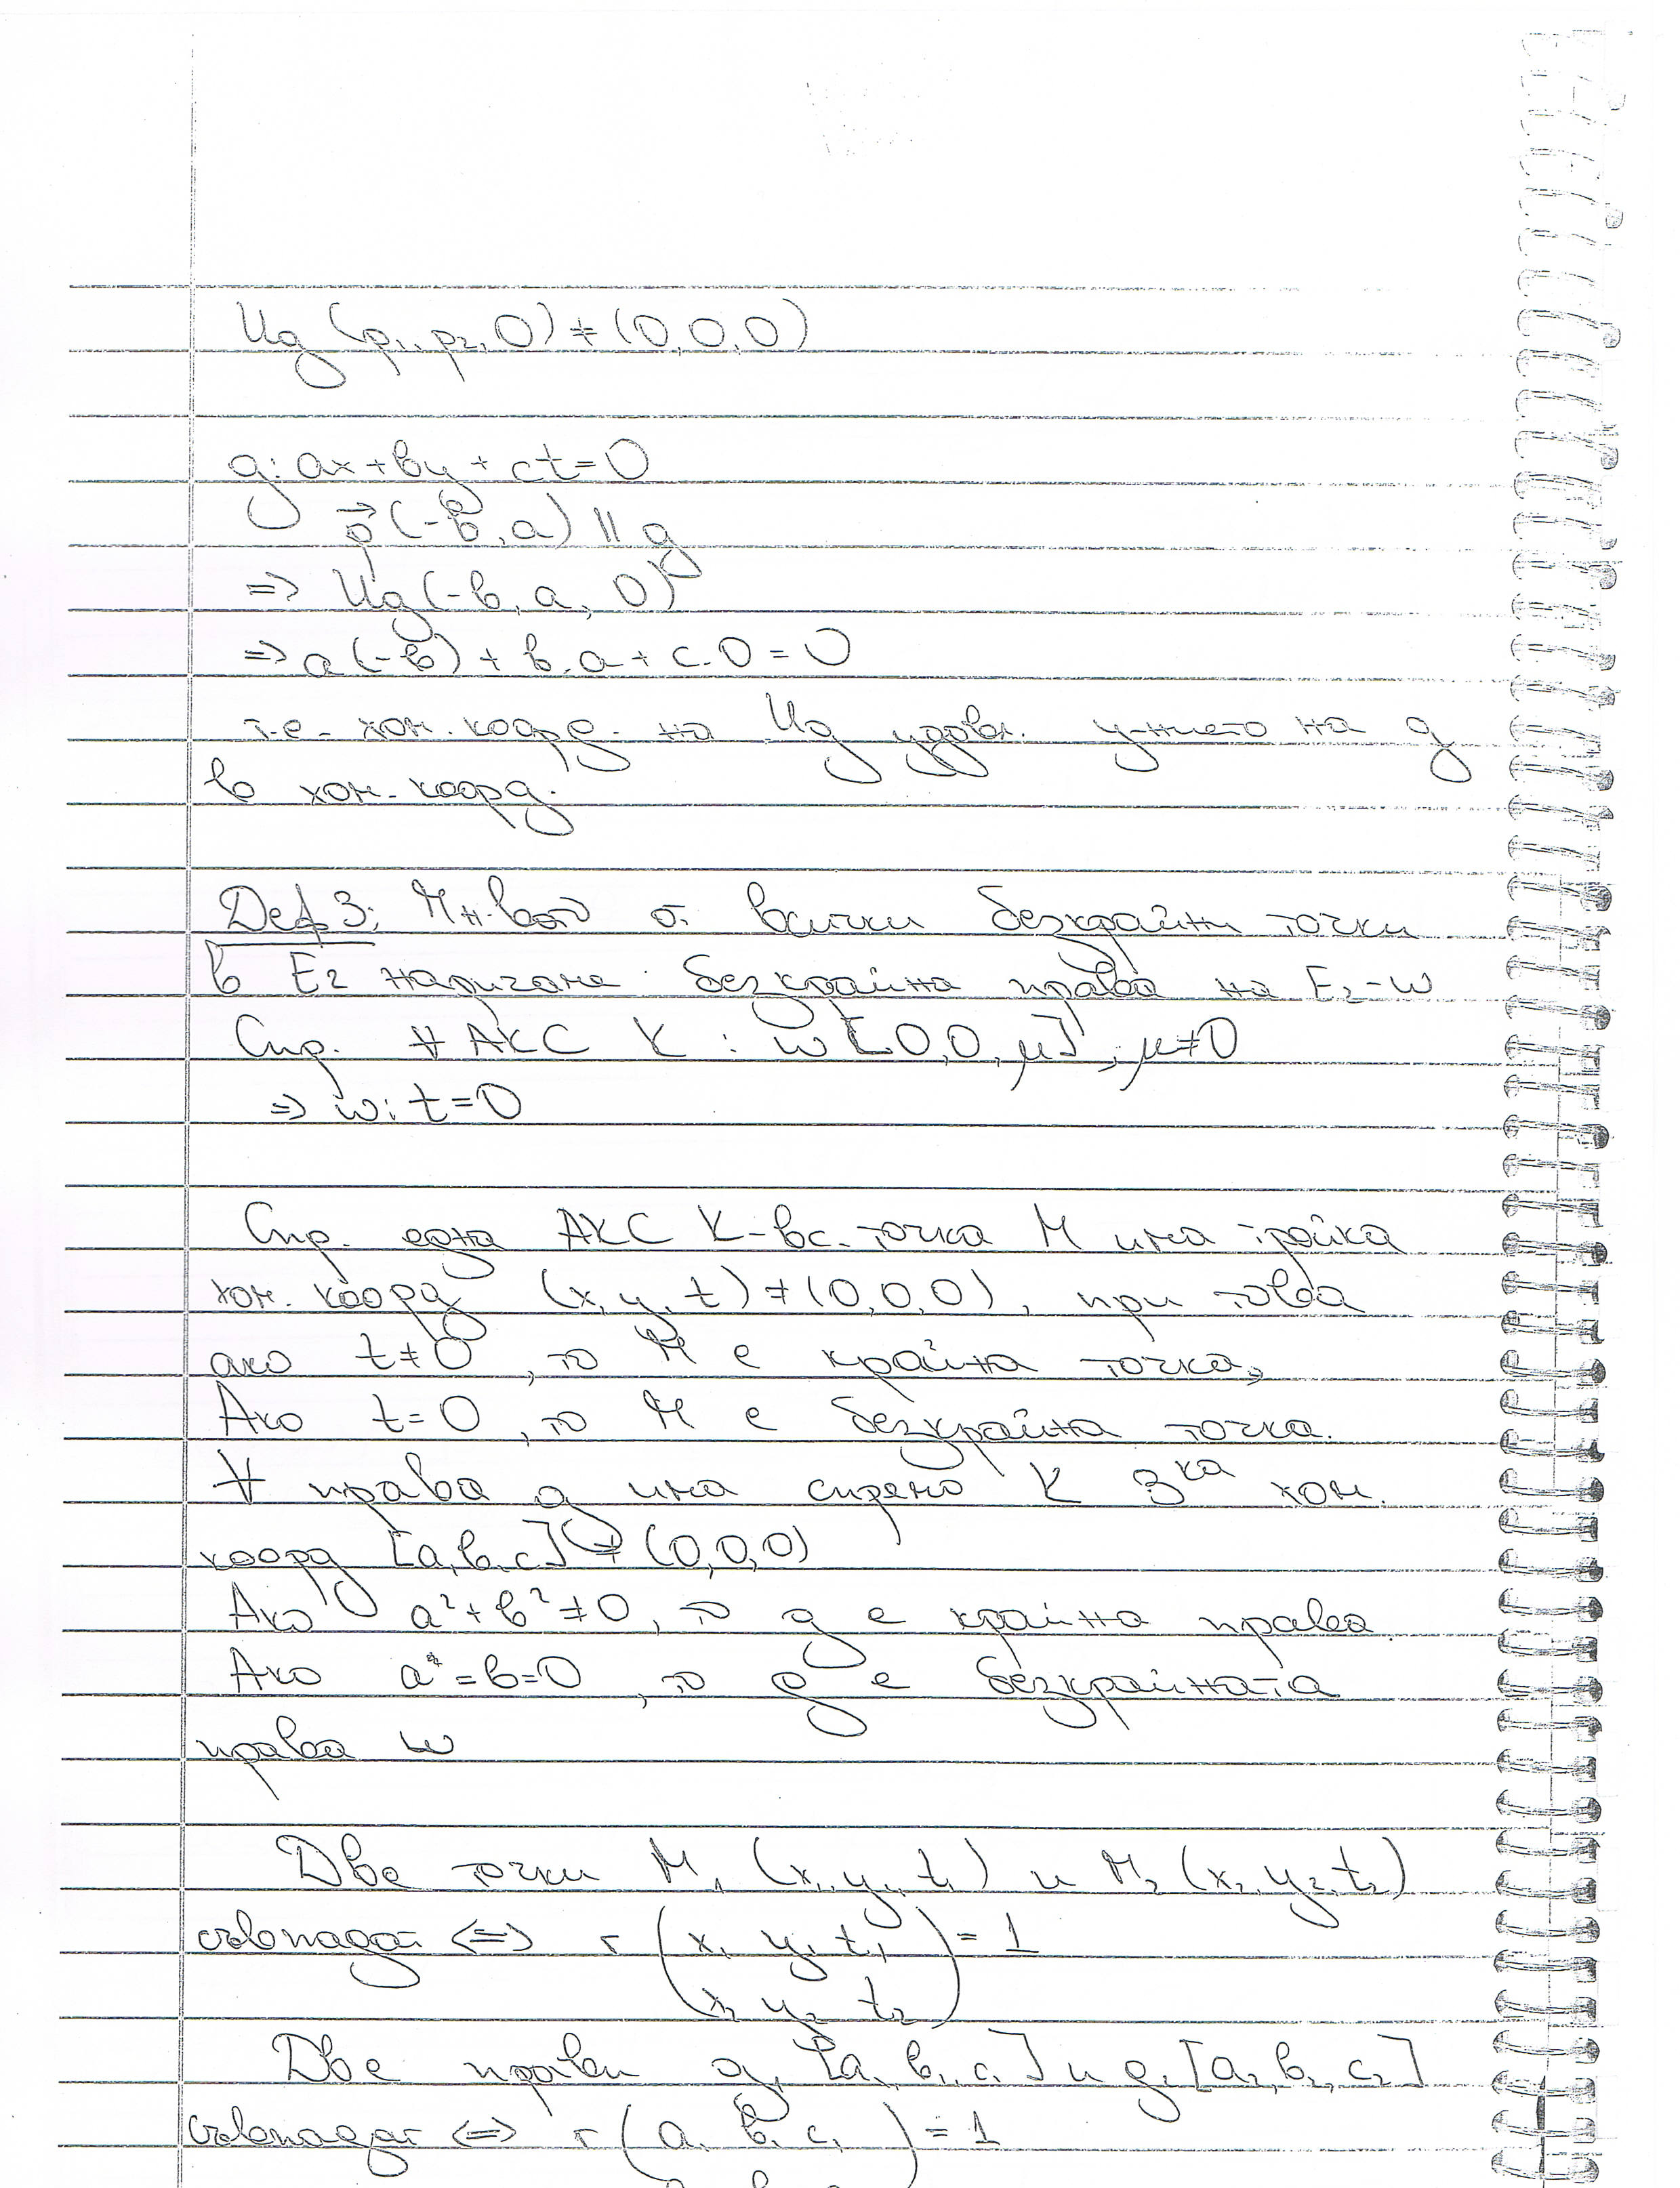 Ug (p₁, p₂, 0) ≠ (0,0,0)
g: ax + by + ct = 0
p⃗ (-b, a) || g
=> Ug (-b, a, 0)
=> a(-b) + b.a + c.0 = 0
т.е. хом. коорд. на Ug удовл. у-нието на g
в хом. коорд.
Деф 3: Мн-вото от всички безкрайни точки
в E₂ наричаме безкрайна права на E₂ - ω
Спр. ∀ АКС K : ω [0,0,μ], μ≠0
=> ω: t=0
Спр. една АКС K - вс. точка M има тройка
хом. коорд (x, y, t) ≠ (0,0,0), при това
ако t≠0, то M е крайна точка,
Ако t=0, то M е безкрайна точка.
∀ права g има спрямо K 3ка хом.
коорд [a, b, c] ≠ (0,0,0)
Ако a² + b² ≠ 0, то g е крайна права.
Ако a = b = 0, то g е безкрайната
права ω
Две точки M₁ (x₁, y₁, t₁) и M₂ (x₂, y₂, t₂)
съвпадат <=> r ( x₁ y₁ t₁ ) = 1
x₂ y₂ t₂
Две прави g₁ [a₁, b₁, c₁] и g₂ [a₂, b₂, c₂]
съвпадат <=> r ( a₁ b₁ c₁ ) = 1